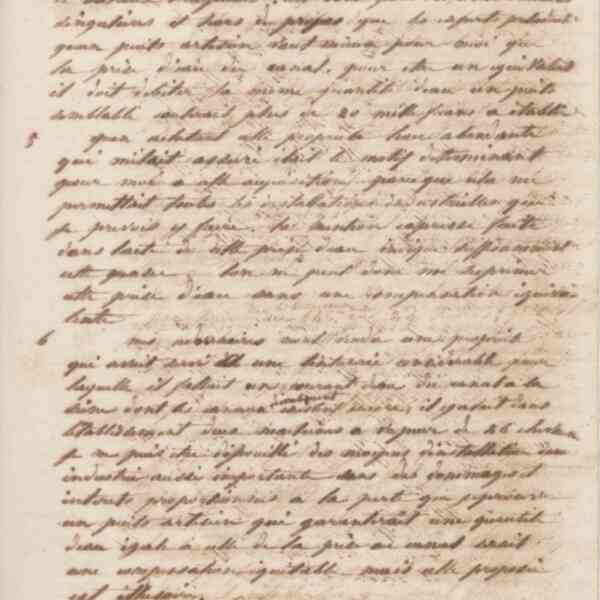 singulières et hors de propos que les experts prétendent
qu'un puits artésien vaut mieux pour moi que
la prise d'eau du canal, pour être un équivalent
il doit débiter la même quantité d'eau un puits
semblable coûterait plus de 20 mille francs à établir
5 qu'en achetant cette propriété l'eau abondante
qui m'était assuré était le motif déterminant
pour moi a cette acquisition, parceque cela me
permettait toutes les installations industrielles que
je prévois y faire. la mention expresse faite
dans l'acte de cette prise d'eau indique suffisamment
cette pensée, l'on ne peut donc me supprimer
cette prise d'eau sans une compensation équiva
lente
6 mes vendeurs m'ont vendu une propriété
qui avait servi à une industrie considérable pour
laquelle il fallait un courant d'eau du canal à la
Seine dont les canaux existent encore, il y avait dans
l'établissement deux machines à vapeur de 26 chevaux
je ne puis être dépouillé des moyens d'installation d'une
industrie aussi importante sans des dommages et
intérêts proportionnés à la perte que j'éprouverai
un puits artésien qui garantirait une quantité
d'eau égale à celle de la prise au canal serait
une compensation équitable mais cette proposition
est illusoire.